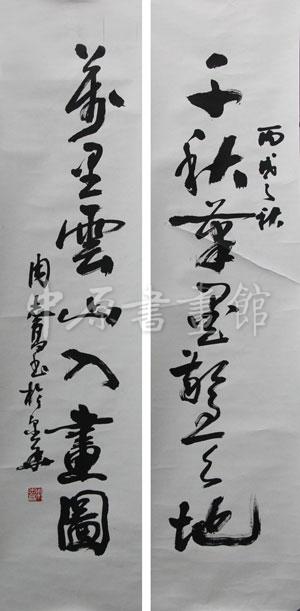 丙戌之秋
千秋筆墨驚天地
萬里雲山入畫圖
周志高書於
中原書畫館